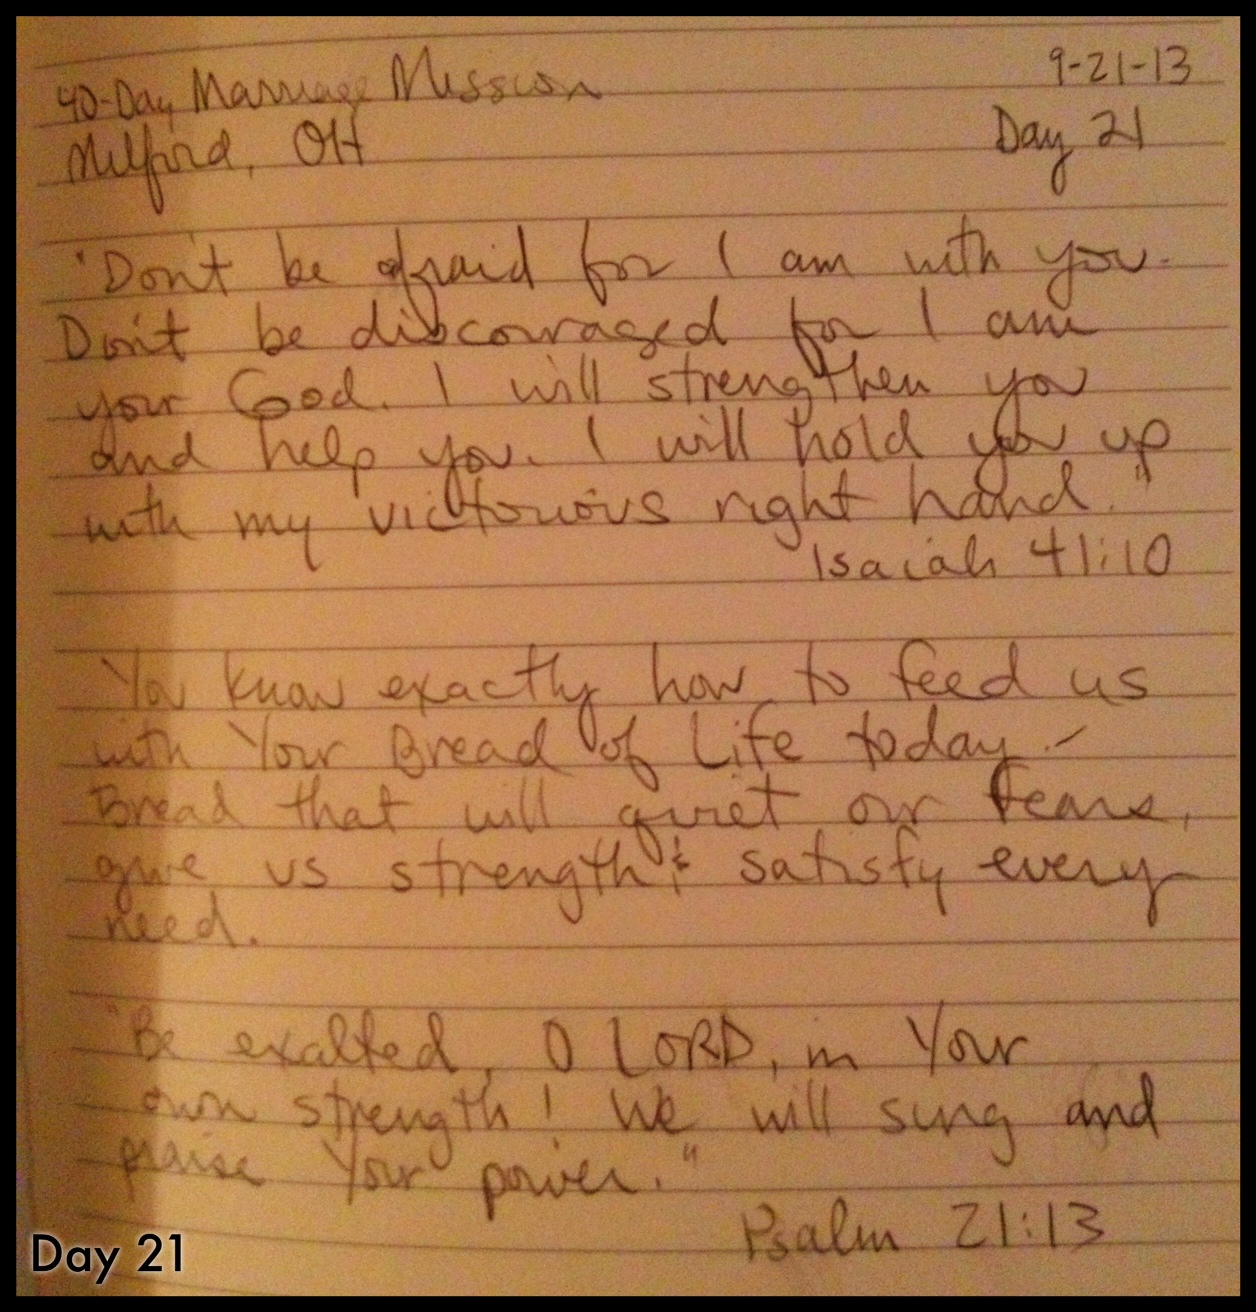 40-Day Marriage Mission 9-21-13
Milford, OH Day 21
"Don't be afraid for I am with you.
Don't be discouraged for I am
your God. I will strengthen you
and help you. I will hold you up
with my victorious right hand."
Isaiah 41:10
You know exactly how to feed us
with Your Bread of Life today -
Bread that will quiet our fears,
give us strength & satisfy every
need.
"Be exalted, O LORD, in Your
own strength! We will sing and
praise Your power."
Psalm 21:13
Day 21